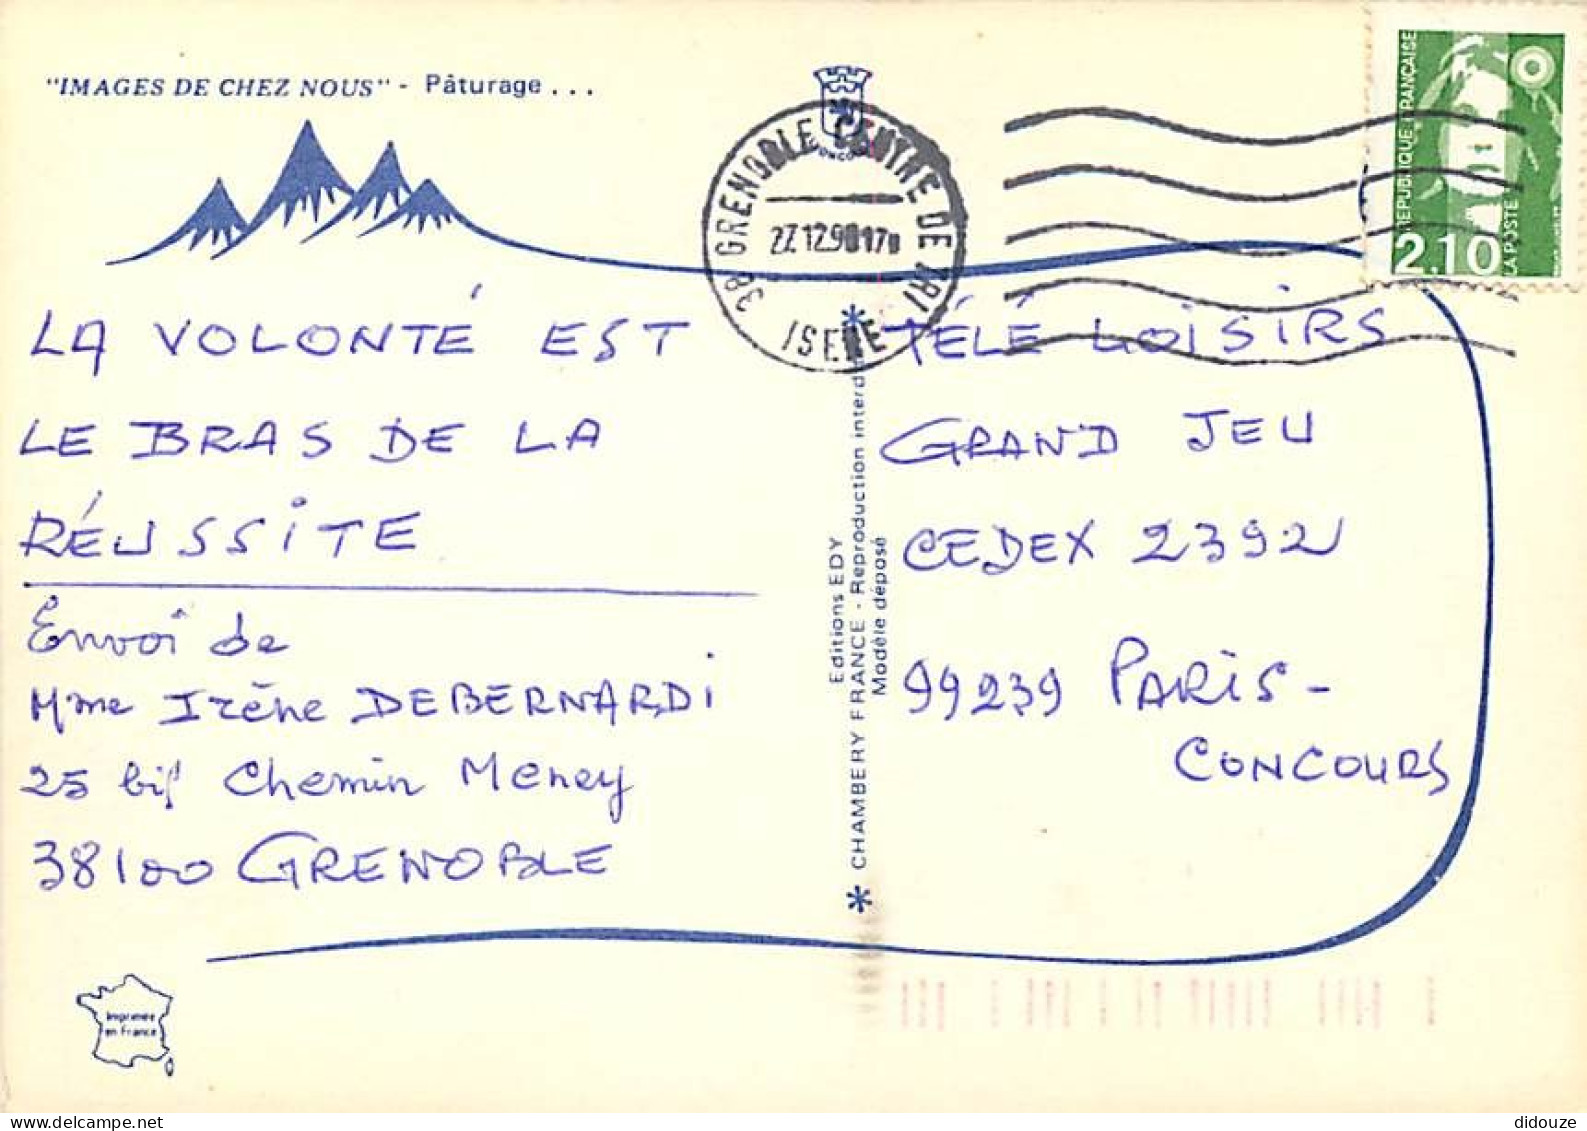 "IMAGES DE CHEZ NOUS" - Pâturage . . .
38 GRENOBLE CENTRE DE TRI
27.12.90 17H
ISERE
REPUBLIQUE FRANÇAISE
LA POSTE
2.10
LA VOLONTÉ EST
LE BRAS DE LA
RÉUSSITE
Envoi de
Mme Irène DEBERNARDI
25 bis Chemin Meney
38100 GRENOBLE
Imprimée
en France
Editions EDY
* CHAMBERY FRANCE - Reproduction interd *
Modèle déposé
TÉLÉ LOISIRS
GRAND JEU
CEDEX 2392
99239 PARIS -
CONCOURS
didouze